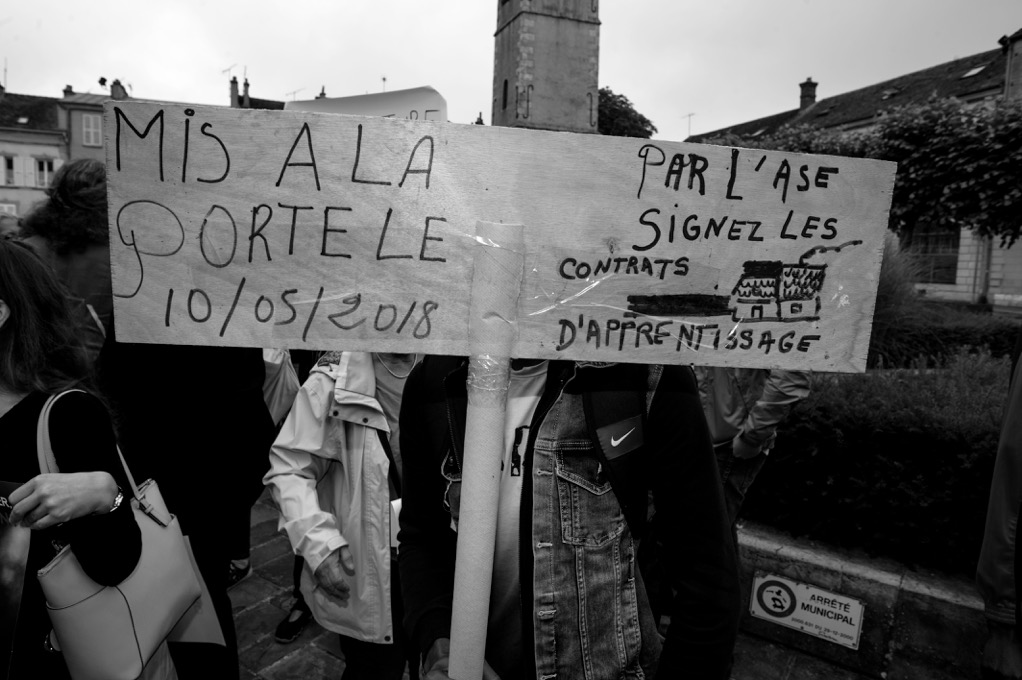 MIS A LA
PORTE LE
10/05/2018
PAR L'ASE
SIGNEZ LES
CONTRATS
D'APPRENTISSAGE
ARRÊTÉ
MUNICIPAL